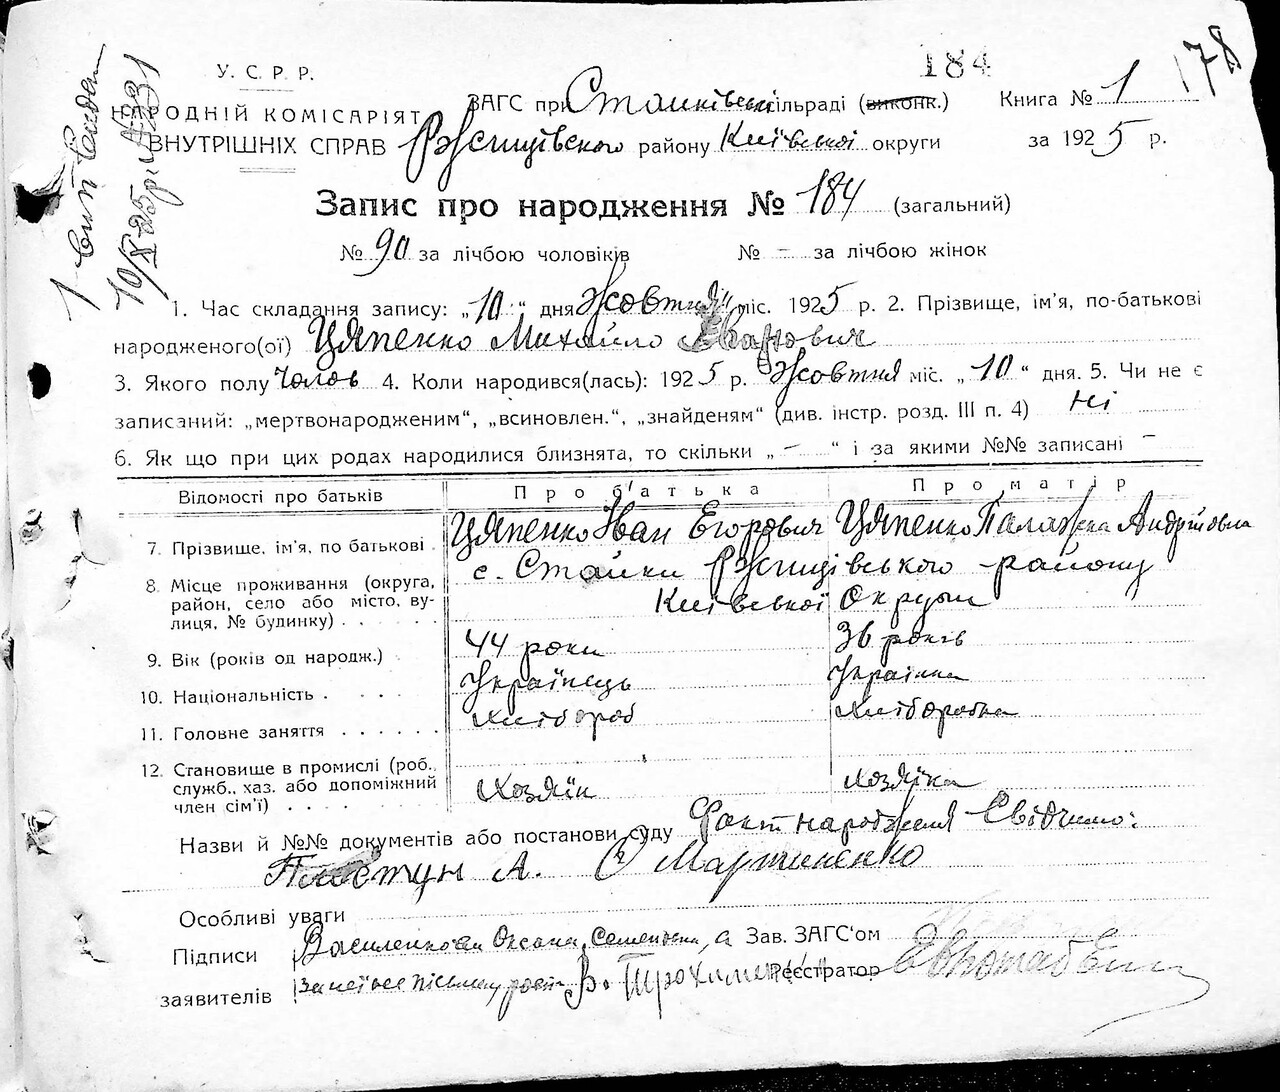 184
178
У. С. Р. Р.
НАРОДНІЙ КОМІСАРІЯТ
ВНУТРІШНІХ СПРАВ
ЗАГС при Стайківській сільраді (виконк.) Книга № 1
Ржищівського району Київської округи за 1925 р.
Запис про народження № 184 (загальний)
№ 90 за лічбою чоловіків № – за лічбою жінок
1. Час складання запису: „10“ дня Жовтня міс. 1925 р. 2. Прізвище, ім'я, по-батькові
народженого(ої) Цяпенко Михайло Іванович
3. Якого полу Чолов 4. Коли народився(лась): 1925 р. Жовтня міс. „10“ дня. 5. Чи не є
записаний: „мертвонародженим“, „всиновлен.“, „знайденям“ (див. інстр. розд. III п. 4) Ні
6. Як що при цих родах народилися близнята, то скільки „–“ і за якими №№ записані –
Відомості про батьків Про батька Про матір
7. Прізвище, ім'я, по батькові Цяпенко Іван Егорович Цяпенко Палажка Андріївна
8. Місце проживання (округа, район, село або місто, вулиця, № будинку) с. Стайки Ржищівського району
Київської Округи
9. Вік (років од народж.) 44 роки 36 років
10. Національність Українець Українка
11. Головне заняття Хлібороб Хліборобка
12. Становище в промислі (роб., служб., хаз. або допоміжний член сім'ї) Хозяїн Хозяїка
Назви й №№ документів або постанови суду Факт народження Свідчимо:
Пластун А. Мартиненко
Особливі уваги
Підписи заявителів Василенкова Оксана Семенівна, а
за неї
В. Трохименко
Зав. ЗАГС'ом
Реєстратор